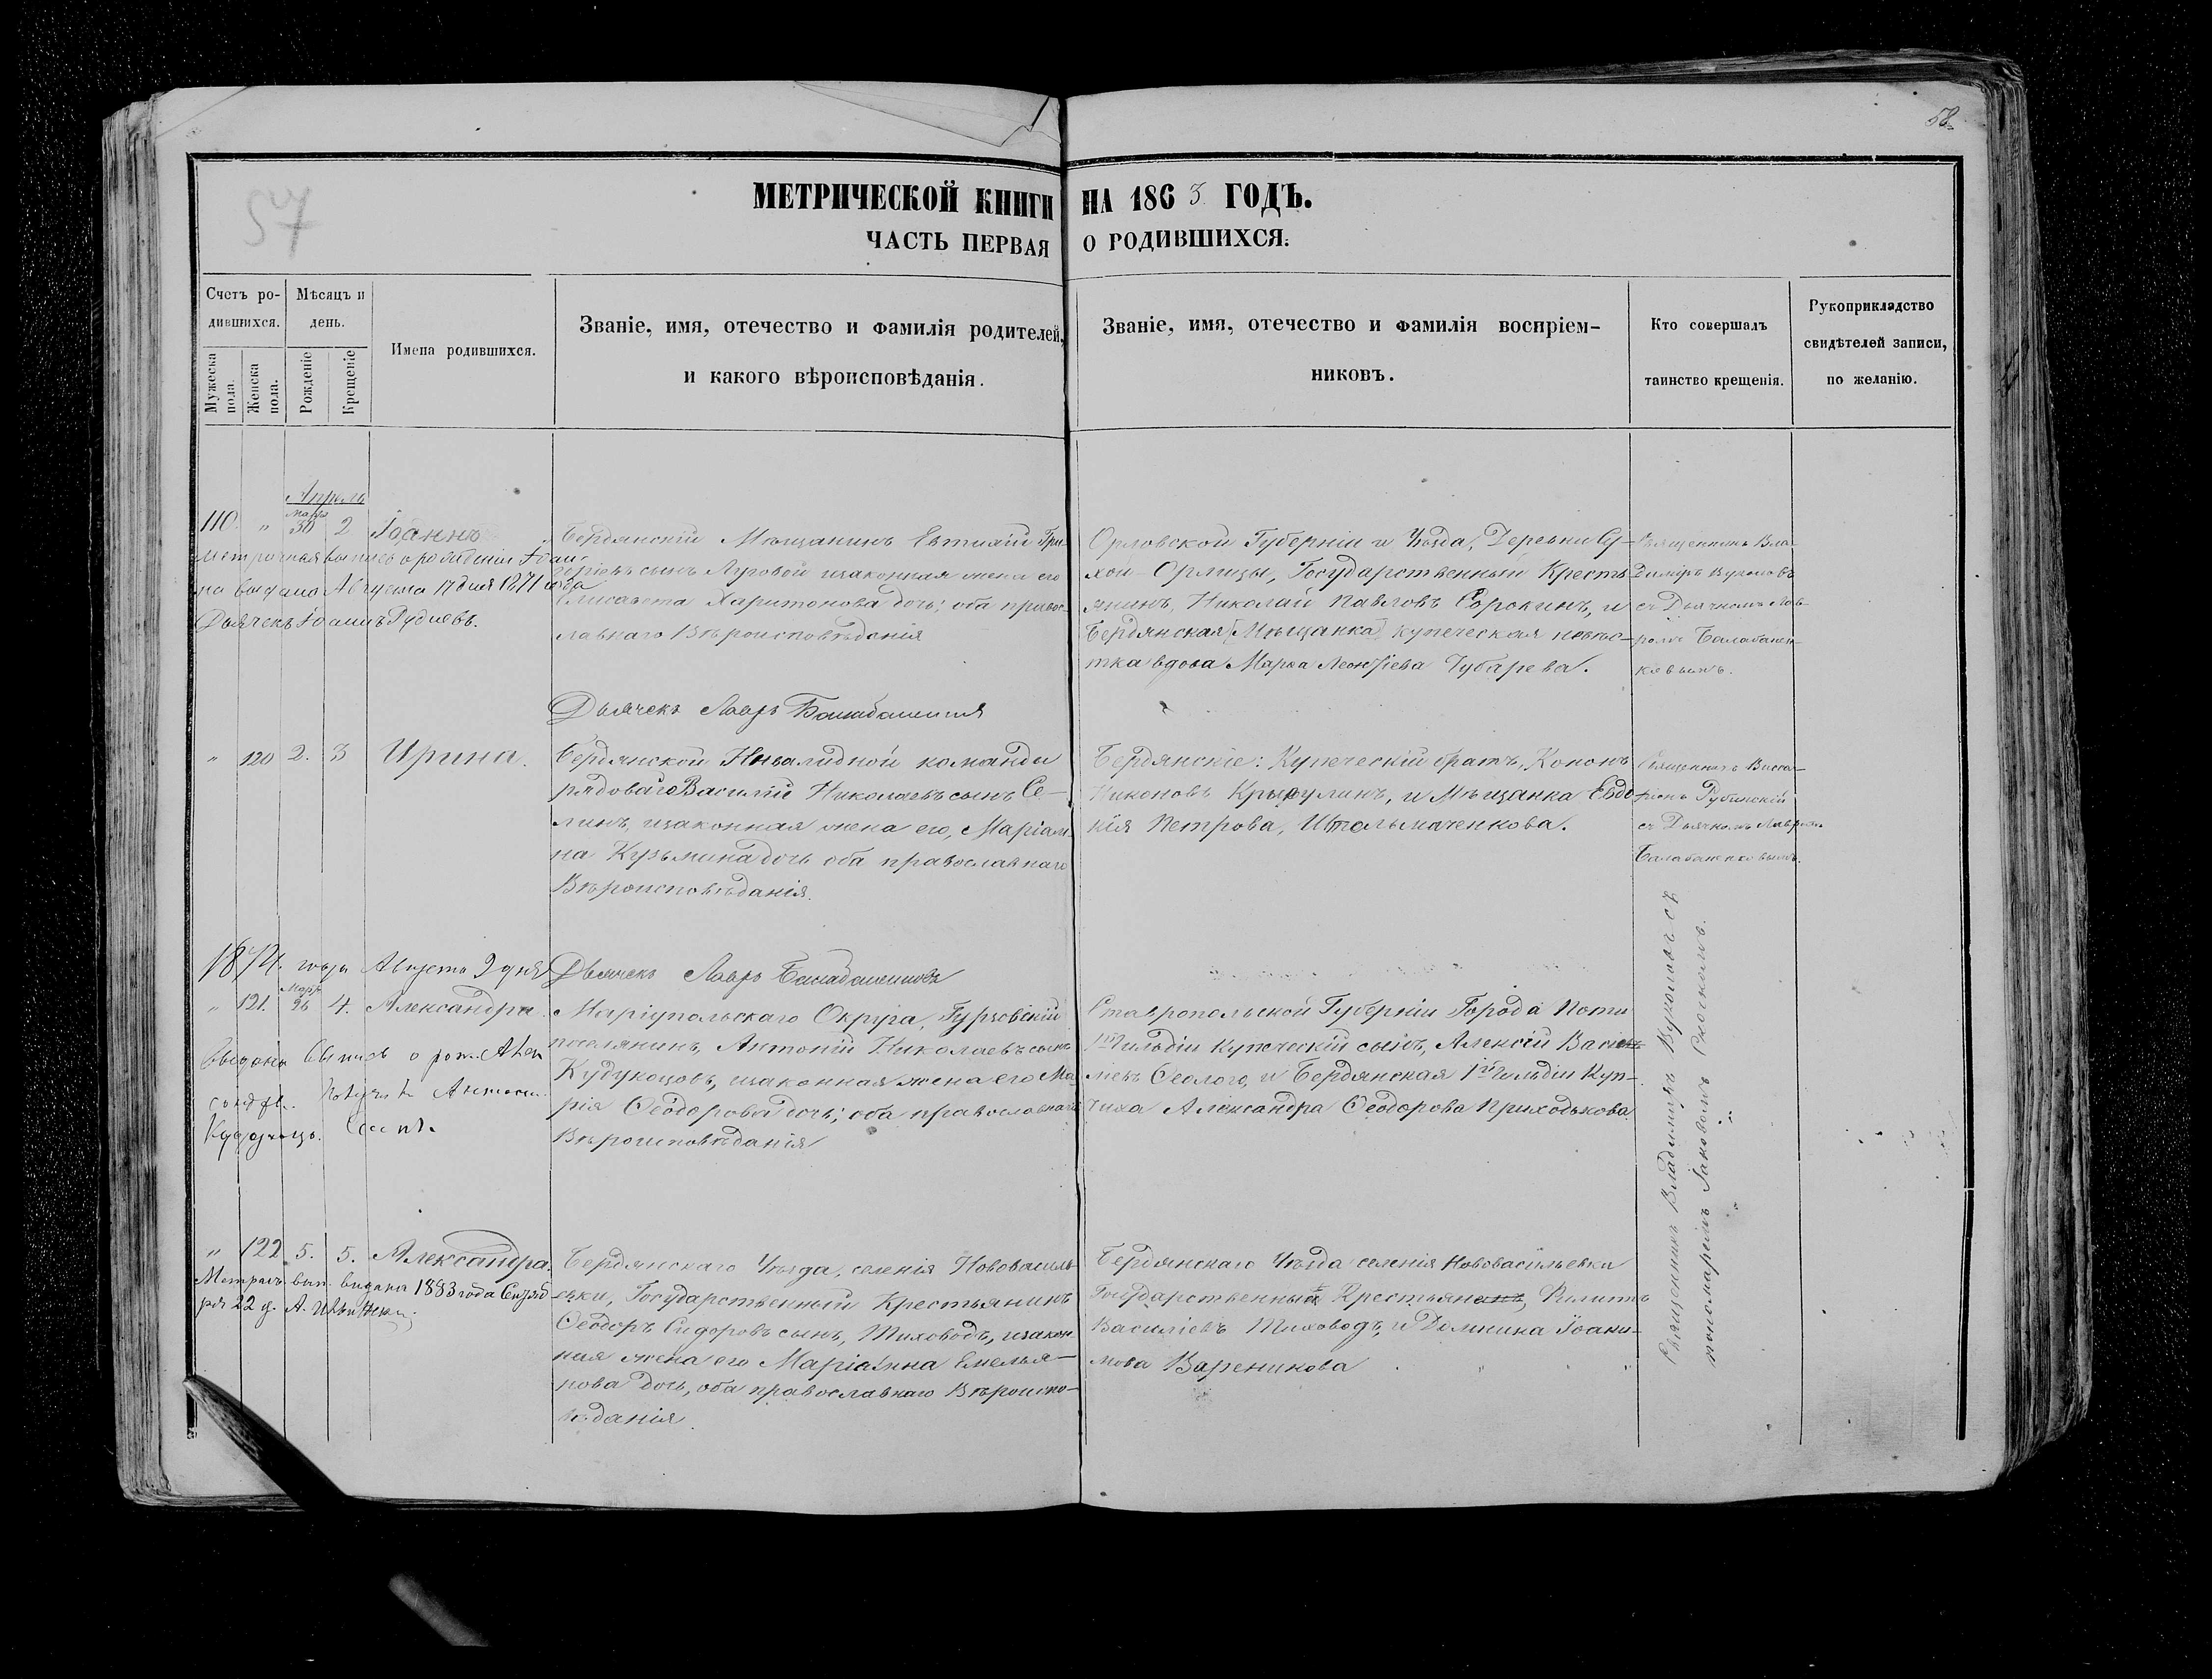 58
57
МЕТРИЧЕСКОЙ КНИГИ НА 1863 ГОДЪ.
ЧАСТЬ ПЕРВАЯ О РОДИВШИХСЯ.
Счетъ ро-
дившихся.
Мужеска
пола.
Женска
пола.
Мѣсяцъ и
день.
Рожденіе
Крещеніе
Имена родившихся.
Званіе, имя, отечество и фамилія родителей,
и какого вѣроисповѣданія.
Званіе, имя, отечество и фамилія воспріем-
никовъ.
Кто совершалъ
таинство крещенія.
Рукоприкладство
свидѣтелей записи,
по желанію.
Апрель
110. " Март 30 2 Іоаннъ
Метричная выпись о рожденіи Іоан-
на выдана Августа 17 дня 1871 года
Дьячекъ Іоаннъ Рудневъ.
Бердянскій Мѣщанинъ Евтихій Гри-
горіевъ сынъ Луговой изаконная жена его
Елисавета Харитонова дочь; оба правос-
лавнаго Вѣроисповѣданія
Орловской Губерніи и Уѣзда, Деревни Су-
хой-Орлицы, Государственный Кресть-
янинъ, Николай Павловъ Сорокинъ, и
Бердянская [Мѣщанка] купеческая невѣс-
тка вдова Марѳа Леонтіева Чубарева.
Священникъ Вла-
диміръ Вуколовъ
съ Дьячкомъ Лав-
ромъ Балабанен-
ковымъ.
Дьячекъ Лавръ Балабаненков
" 120 2. 3 Ирина.
Бердянской Инвалидной команды
рядоваго Василій Николаевъ сынъ Се-
линъ, изаконная жена его, Маріам-
на Кузьмина дочь оба православнаго
Вѣроисповѣданія.
Бердянскіе: Купеческій братъ, Кононъ
Никоновъ, и Мѣщанка Евдо-
кія Петрова, Штольмаченкова.
Священникъ
Рубинскій
съ Дьячкомъ Лавром
Балабаненковымъ.
1874. года Августа 9 дня
Дьячекъ Лавръ Балабаненковъ
" 121. Март 26 4. Александра.
Выдана выпись о рож. Алек
сандр. Антони
Маріупольскаго Округа, Гурзовскій
поселянинъ, Антоній Николаевъ сынъ
Кудукоцовъ, изаконная жена его Ма-
рія Ѳеодорова дочь; оба православнаго
Вѣроисповѣданія
Ставропольской Губерніи Города Поти
1й Гильдіи купеческій сынъ, Алексій
и Бердянская 1й Гильдіи Куп-
чиха Александра Ѳеодорова Приходькова.
Священникъ Владиміръ Вуколовъ съ
пономаремъ Іаковомъ
" 122 5. 5. Александра.
Метрич. вып. выдана 1883 года Сентяб
ря 22 д.
Бердянскаго Уѣзда, селенія Нововасиль-
евки, Государственный Крестьянинъ
Ѳеодоръ Сидоровъ сынъ, Тиховодъ, изакон-
ная жена его Маріанна Емелья-
нова дочь, оба православнаго Вѣроиспо-
вѣданія.
Бердянскаго Уѣзда селенія Нововасильевки
Государственный Крестьянинъ, Филиппъ
Василіевъ Тиховодъ, и Домника Іоаки-
мова Вареникова